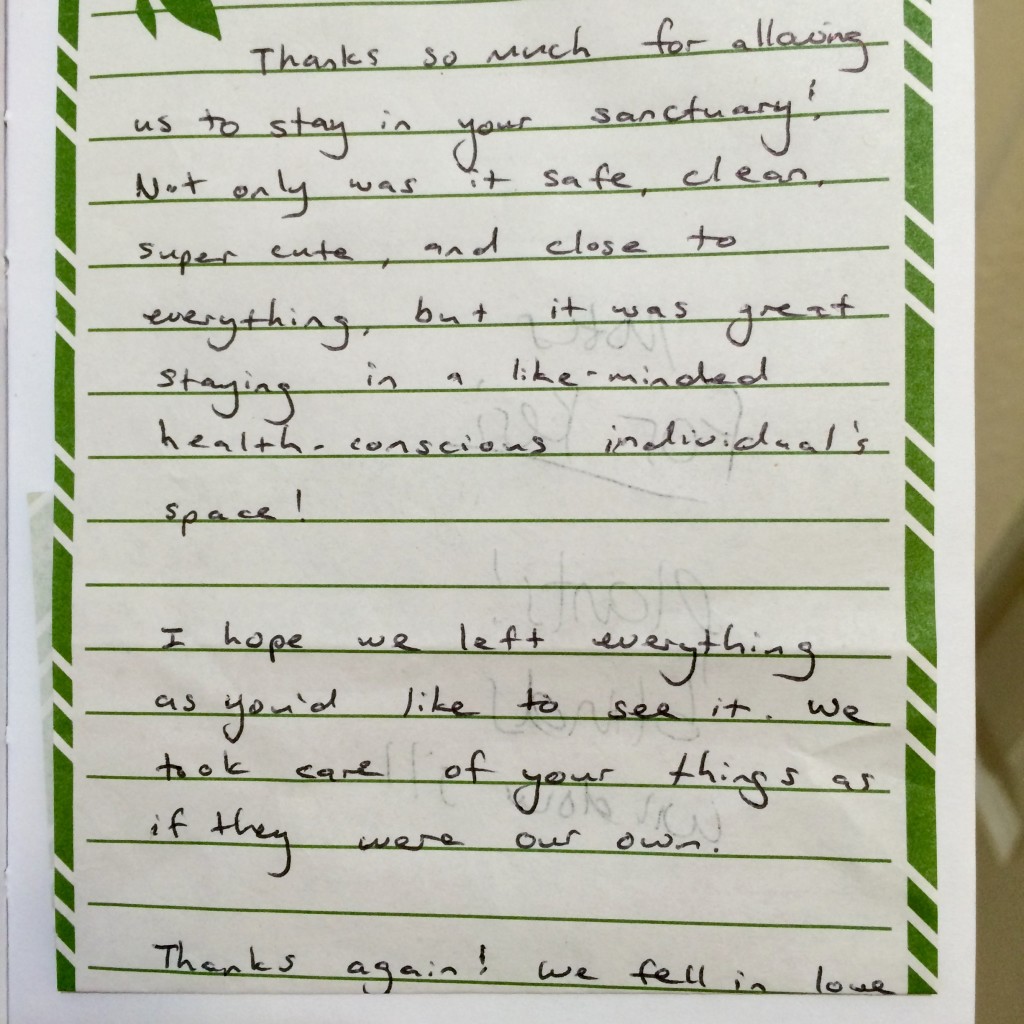 Thanks so much for allowing
us to stay in your sanctuary!
Not only was it safe, clean,
super cute, and close to
everything, but it was great
staying in a like-minded
health-conscious individual's
space!
I hope we left everything
as you'd like to see it. We
took care of your things as
if they were our own.
Thanks again! We fell in love